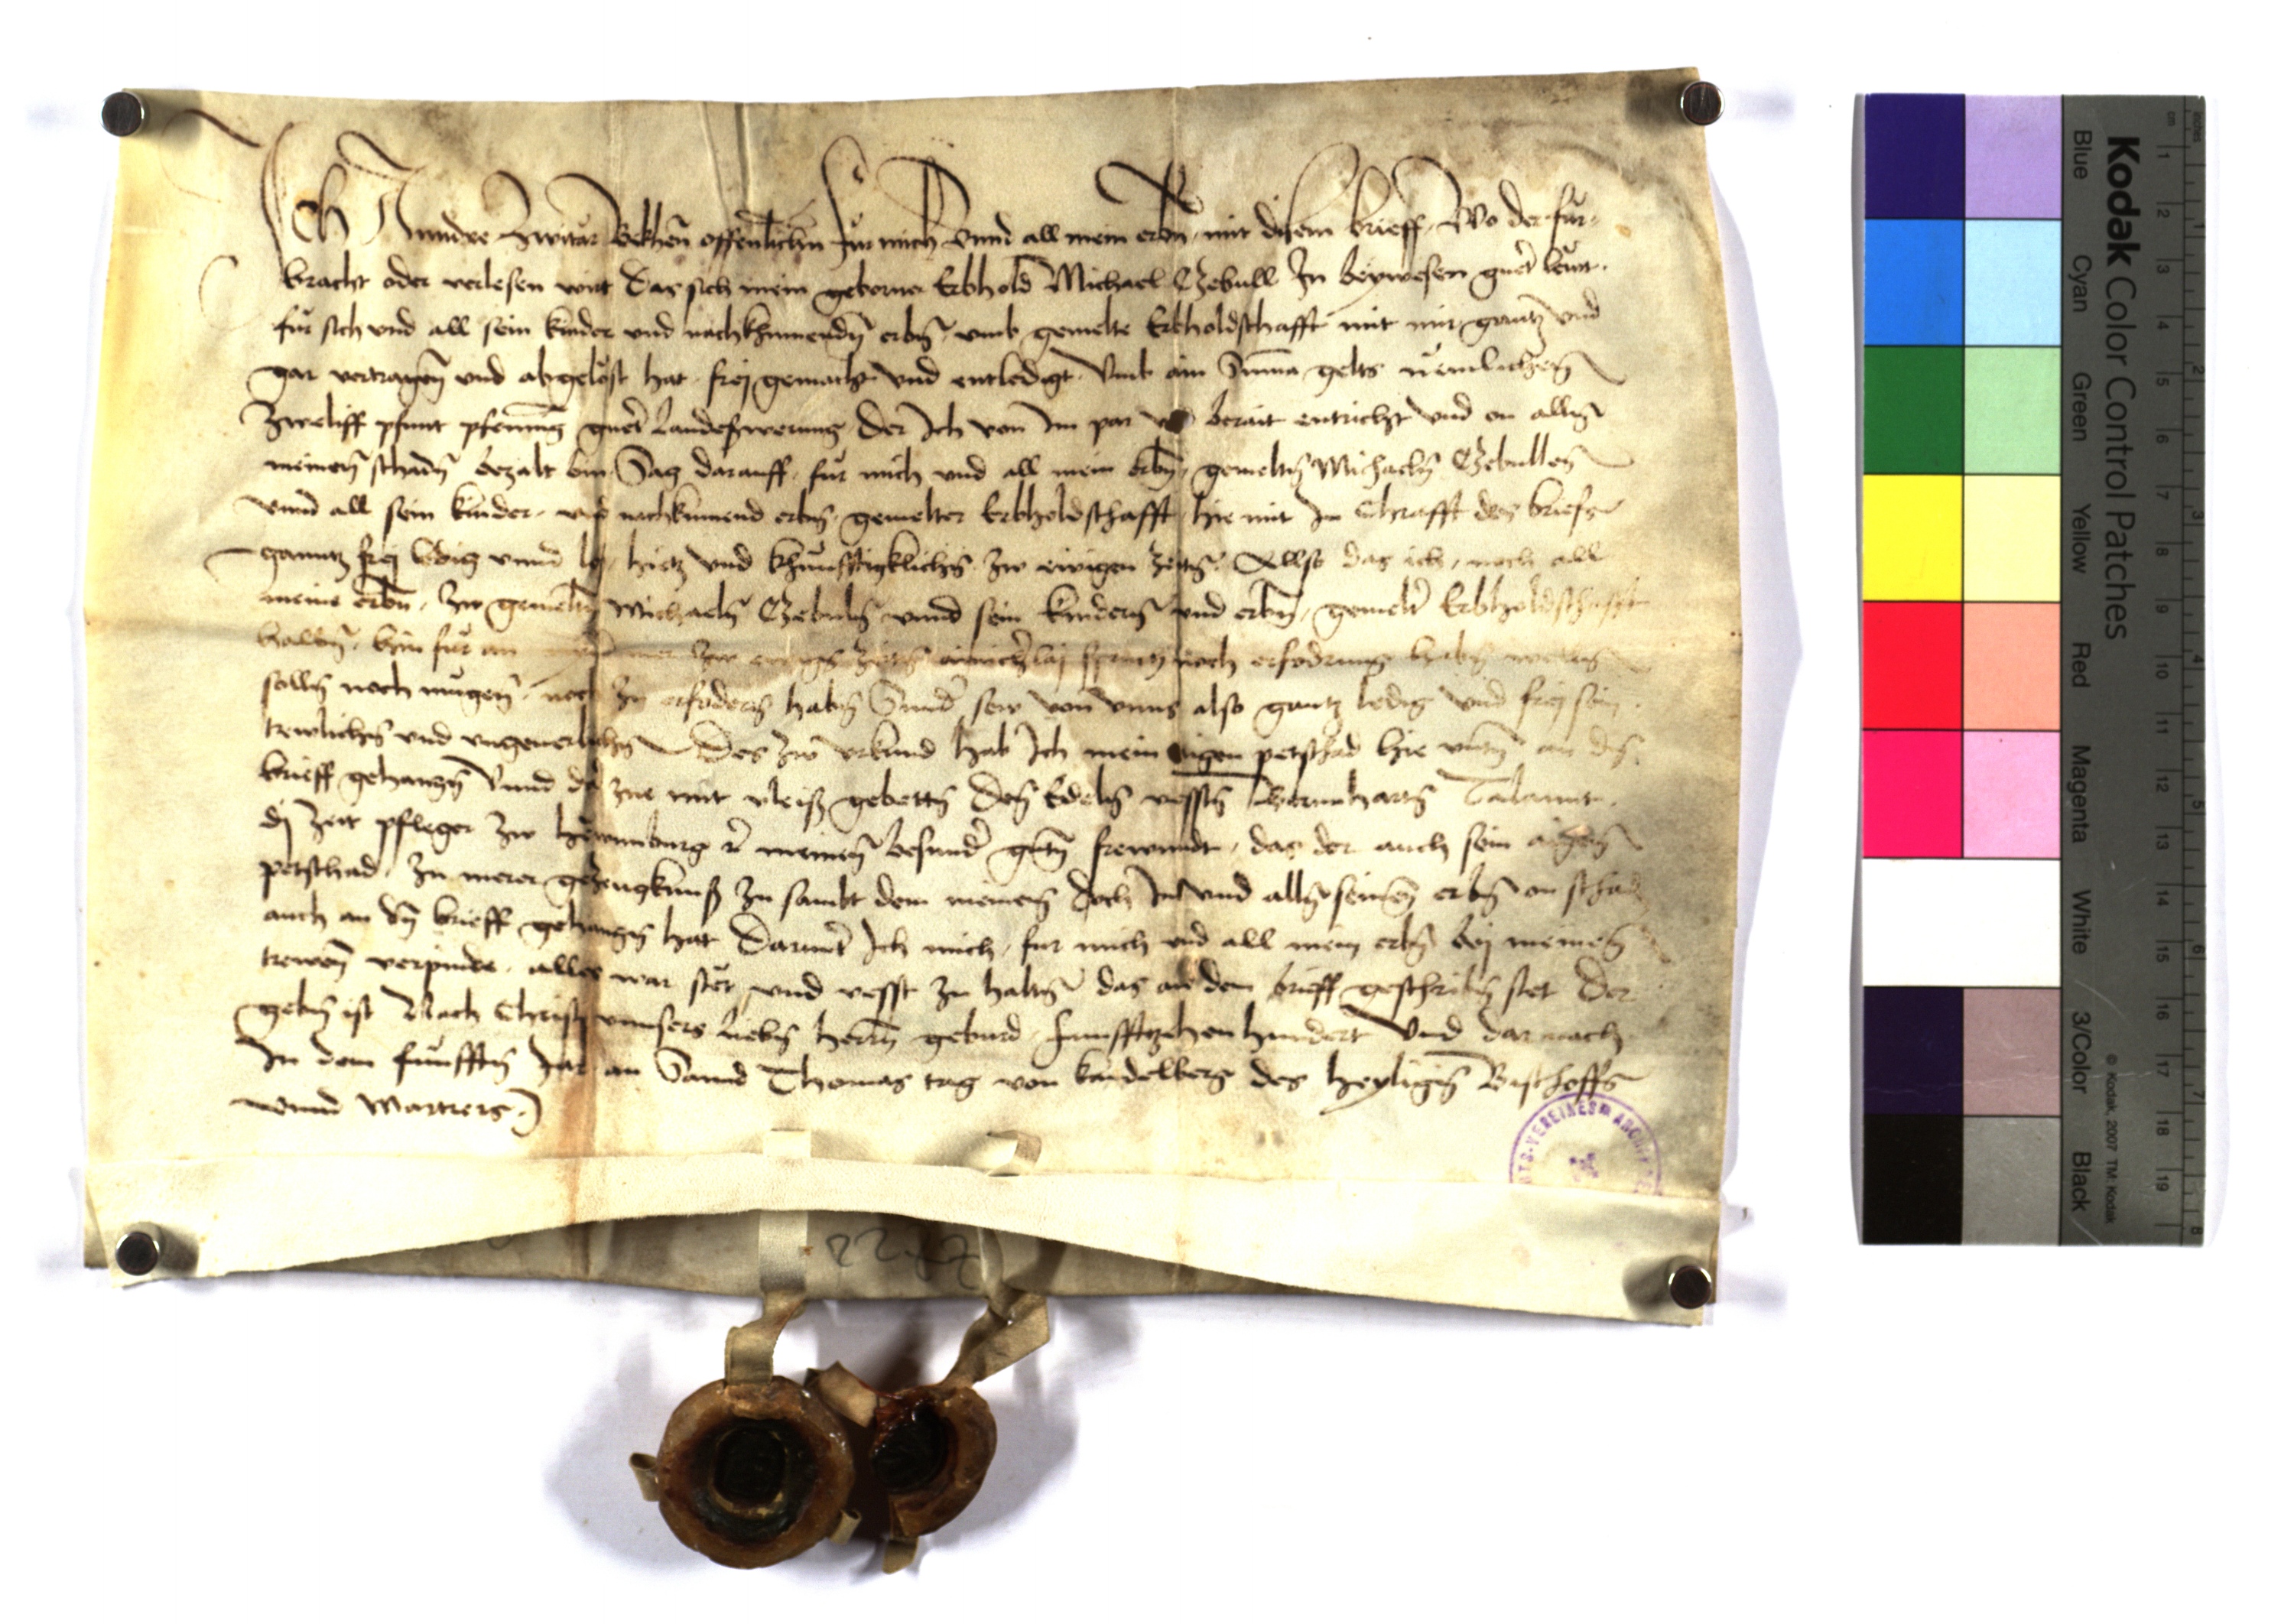 Ich Anndre Zwitar Bekhen offennlichn fur mich vnnd all mein erbn mit disem brieff Wo der fur-
bracht oder verlesen wirt Das sich mein geborner Erbhold Michael Czebull In beywesen guet leut
fur sich vnd all sein kinder vnd nachkhumendn erbn vmb gemelte Erbholdschafft mit mir gantz vnd
gar vertragen vnd abgelost hat frej gemacht vnd entledigt Vmb ain Suma gelts nemlichen
zweliff pfunt pfening guet Landeswerung Der Ich von Im par berait entricht vnd on alln
meinen schadn bezalt bin Sag darauff fur mich vnd all mein erbn gemeltn Michaeln Czebullen
vnnd all sein kinder vnd nachkumend erbn gemelter Erbholdschafft hie mit In Chrafft des briefs
ganntz frej ledig vnnd hietz vnd khunfftigklichn zw ewigen zeitn Allso das ich noch all
meine erbn zw gemeltn Michaeln Czebuln vnnd sein kindern vnd erbn gemelt Erbholdschafft
halbn hin fur an zw ewign zeitn spruch noch erfodrung habn welln
solln noch mugen noch zu erfodern habn Sunder sew von vnns also gantz ledig vnd frej sein
trewlichn vnd vngeuerlichn Des zw vrkund hab Ich mein aigen petschad hie vntn an den
brieff gehangn Vnnd da zue mit vleiss gebettn den Edeln vesstn Bernnhartn
dj Zeit pfleger zw meinen besunder gutn frewndt das der auch sein aigen
petschad zu merer gezeugknuss zu sambt dem meinen doch Im vnd alln seinen erbn on schad
auch an dn brieff gehangn hat Darunter Ich mich fur mich vnd all mein erbn bej meinen
trewen verpinde alles war stet vnd vesst zu haltn das an dem brieff geschribn stet Der
gebn ist Nach Christi vnnsers liebn herrn geburd funfftzehen hundert Vnd darnach
In dem funfftn Jar an Sannd Thomas tag von kandelberg des heyligen Bischoffs
vnnd Martrers
VEREINES ARCHIV
Kodak Color Control Patches
Blue Cyan Green Yellow Red Magenta White 3/Color Black
© Kodak, 2007 TM: Kodak
inches 1 2 3 4 5 6 7 8
cm 1 2 3 4 5 6 7 8 9 10 11 12 13 14 15 16 17 18 19